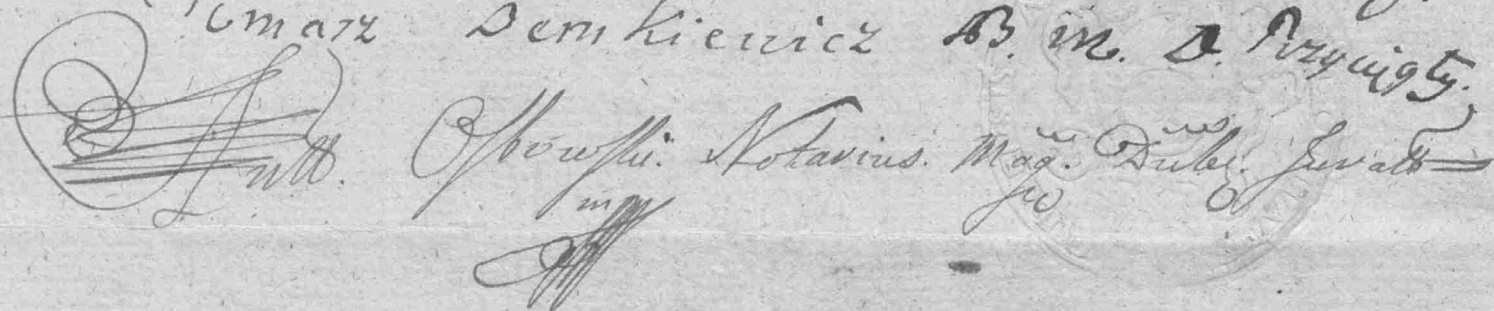 Tomasz Demkiewicz B. m. D. Przysięgły.
Antt. Ossowski. Notarius. Mag. Dub. Juratt
mp